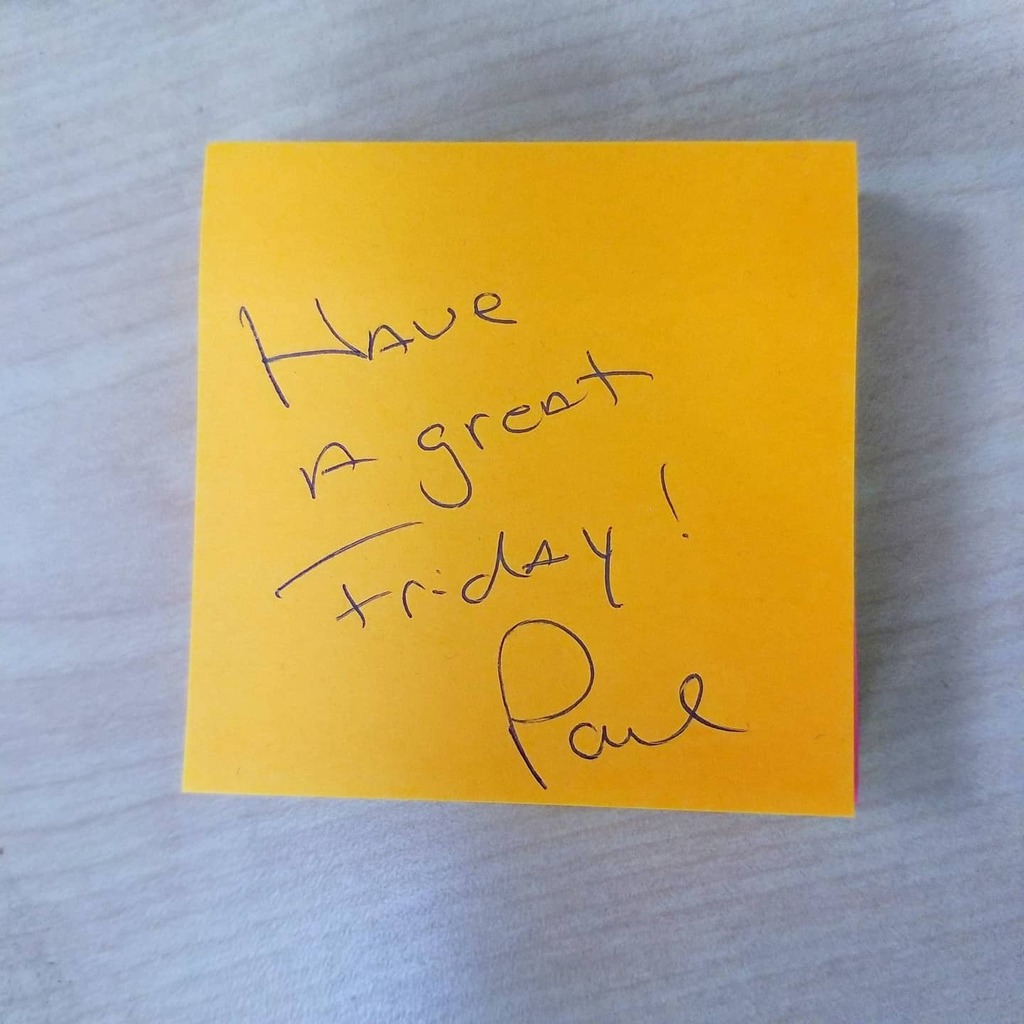 Have
a great
Friday!
Paul